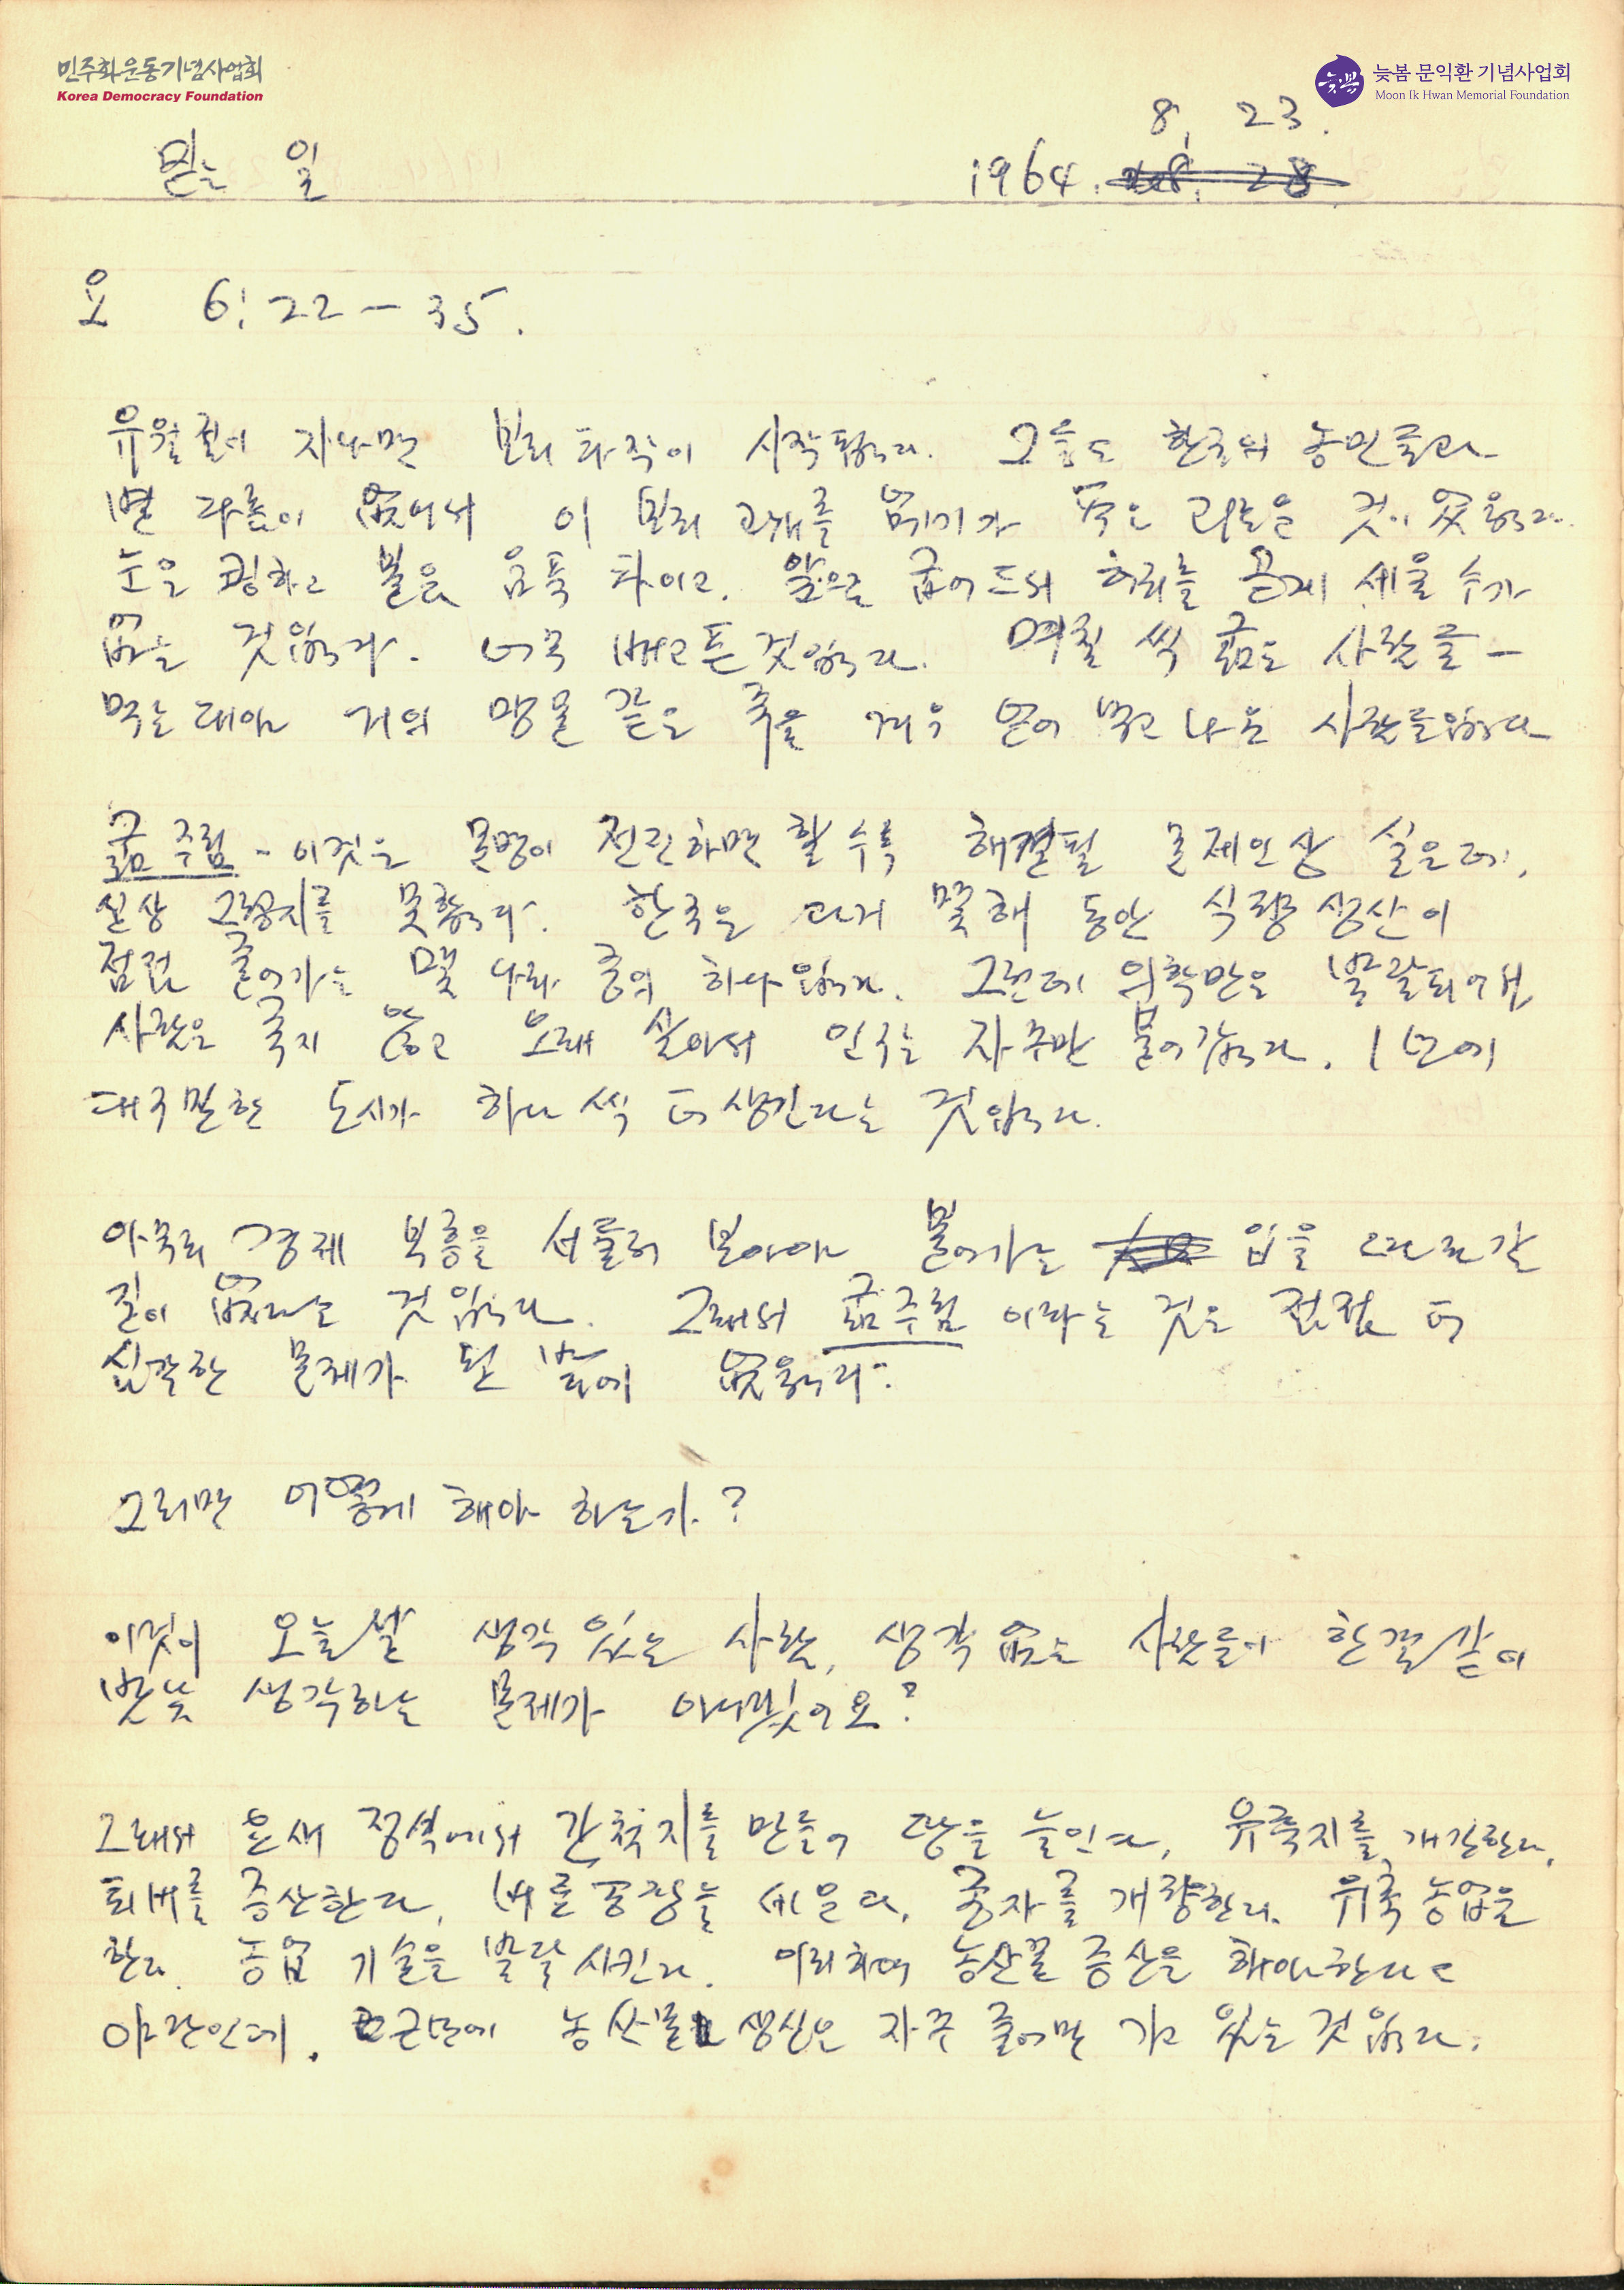 민주화운동기념사업회
Korea Democracy Foundation
늦봄 문익환 기념사업회
Moon Ik Hwan Memorial Foundation
8, 23.
믿는 일 1964.
요 6:22-35.
유월절이 지나면 보리 타작이 시작됩니다. 그들도 한국의 농민들과
별 다름이 없어서 이 보리 고개를 넘기가 것이 없읍니다.
눈은 퀭하고 볼은 움푹 파이고. 앞으로 굽어드러 허리를 곧게 세울 수가
없는 것입니다. 너무 배고픈 것입니다. 며칠 씩 굶은 사람들 -
먹는대야 거의 맹물 같은 죽을 겨우 얻어 먹고 나온 사람들입니다
굶주림 - 이것은 문명이 전진하면 할 수록 해결될 문제인상 싶은데,
실상 그렇지를 못합니다. 한국은 과거 몇해 동안 식량 생산이
점점 줄어가는 몇 나라 중의 하나입니다. 그런데 의학만은 발달되어서
사람은 죽지 않고 오래 살아서 인구는 자꾸만 불어갑니다. 1년에
대구만한 도시가 하나씩 더 생긴다는 것입니다.
아무리 경제 부흥을 서둘러 보아야 불어가는 입을 따라갈
길이 없다는 것입니다. 그래서 굶주림이라는 것은 점점 더
심각한 문제가 될 밖에 없읍니다.
그러면 어떻게 해야 하는가?
이것이 오늘날 생각 있는 사람, 생각 없는 사람들이 한결같이
밤낮 생각하는 문제가 아니겠어요?
그래서 요새 정책에서 간척지를 만들어 땅을 늘인다, 유휴지를 개간한다,
퇴비를 증산한다, 비료공장을 세운다, 종자를 개량한다. 유축 농업을
한다. 농업 기술을 발달시킨다. 이리하여 농산물 증산을 해야한다고
야단인데. 근년에 농산물 생산은 자꾸 줄어만 가고 있는 것입니다.